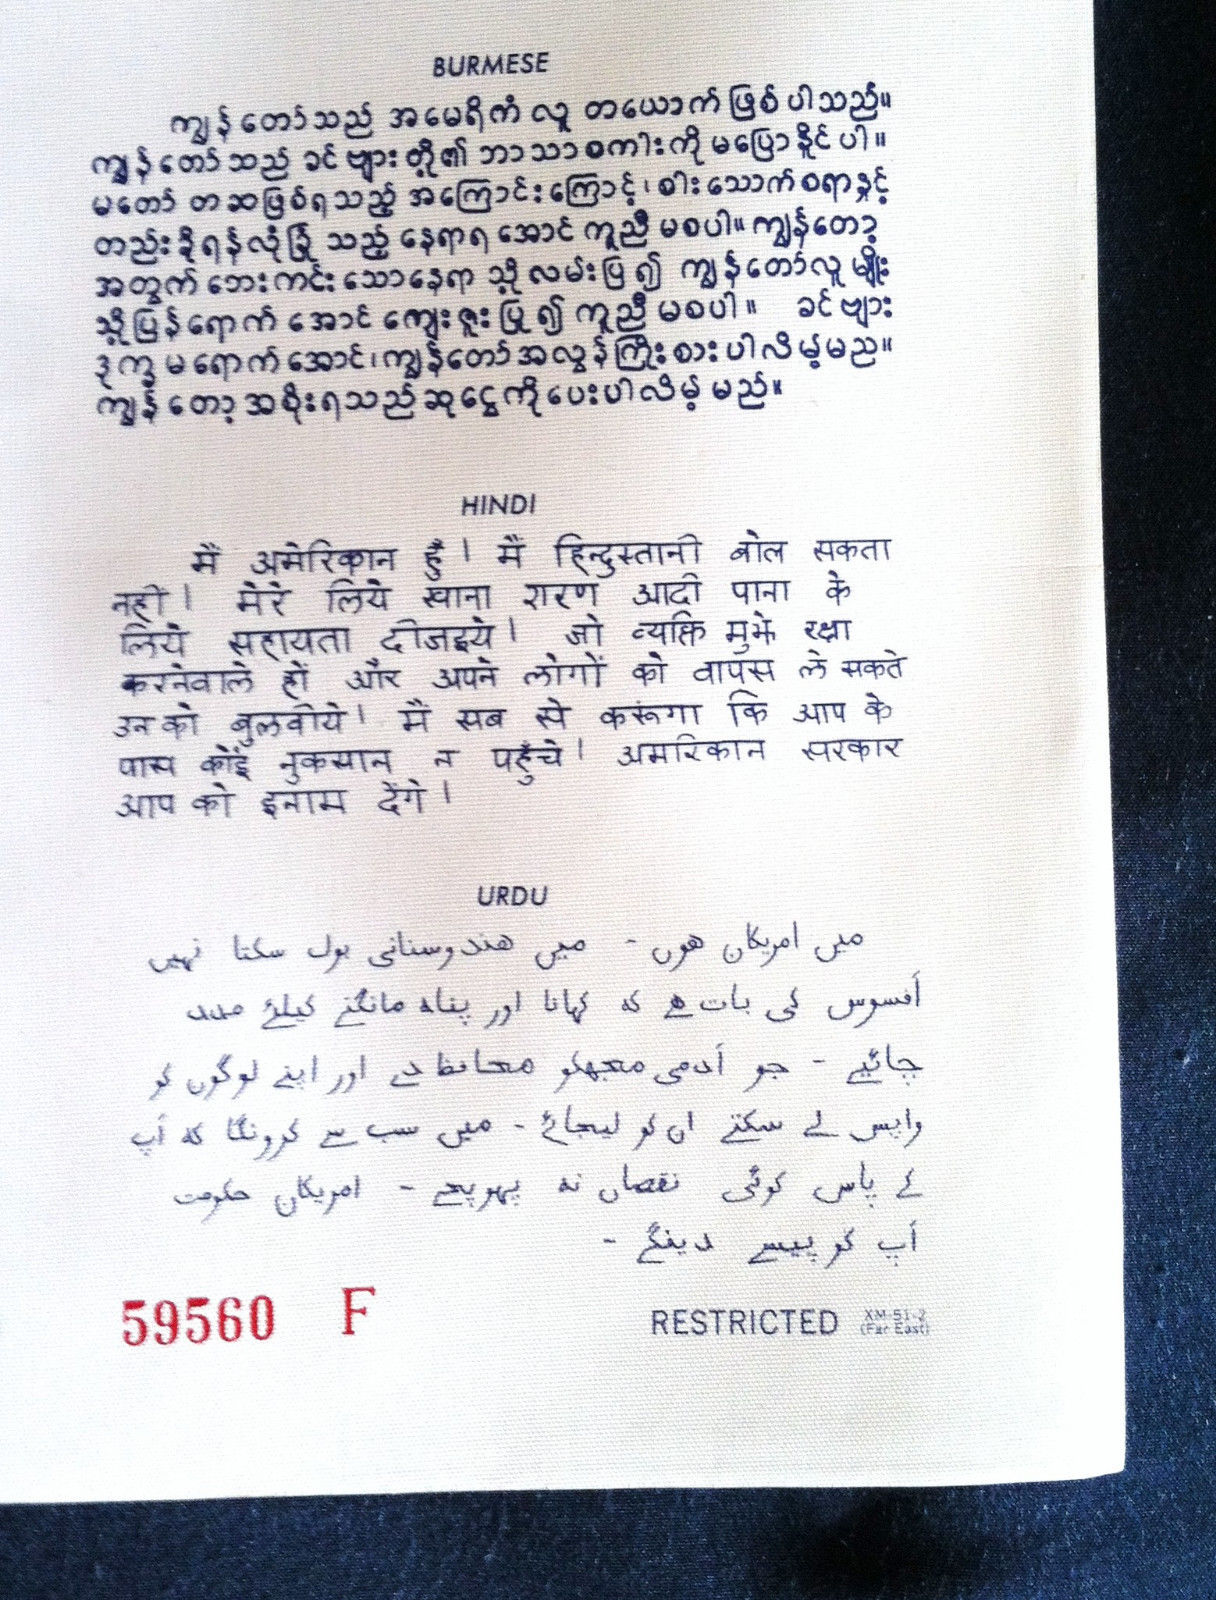 BURMESE
ကျွန်တော်သည် အမေရိကံ လူ တယောက် ဖြစ်ပါသည်။
ကျွန်တော်သည် ခင်ဗျားတို့၏ ဘာသာစကါးကို မပြောနိူင်ပါ။
မတော်တဆဖြစ်ရသည့် အကြောင်းကြောင့်၊ စါးသောက်စရာနှင့်
တည်းခိုရန်လုံခြုံ သည့် နေရာရအောင် ကူညီမစပါ။ ကျွန်တော့
အတွက် ဘေးကင်းသောနေရာ သို့ လမ်းပြ၍ ကျွန်တော်လူမျိုး
သို့ပြန်ရောက်အောင် ကျေးဇူးပြု၍ ကူညီမစပါ။ ခင်ဗျား
ဒုက္ခမရောက်အောင်၊ ကျွန်တော်အလွန်ကြိုးစားပါလိမ့်မည။
ကျွန်တော့အစိုးရသည်ဆုငွေကိုပေးပါလိမ့်မည်။
HINDI
मैं अमेरिकान हुँ। मैं हिन्दुस्तानी बोल सकता
नही। मेरे लिये खाना शरण आदी पाना के
लिये सहायता दीजइये। जो व्यक्ति मुझे रक्षा
करनेवाले हों और अपने लोगों को वापस ले सकते
उनको बुलवीये। मैं सब से करूंगा कि आप के
पास कोई नुकसान न पहुँचे। अमरिकान सरकार
आप को इनाम देंगे।
URDU
میں امریکان ھوں - میں ھندوستانی بول سکتا نہیں
افسوس کی بات ھے کہ کہانا اور پناہ مانگنے کیلئے مدد
چائیے - جو آدمی مجھکو محافظ دے اور اپنے لوگوں کو
واپس لے سکتے ان کو لیجائے - میں سب سے کرونگا کہ آپ
کے پاس کوئی نقصان نہ پہونچے - امریکان حکومت
آپ کو پیسے دینگے -
59560 F RESTRICTED XM-51-2
(Far East)